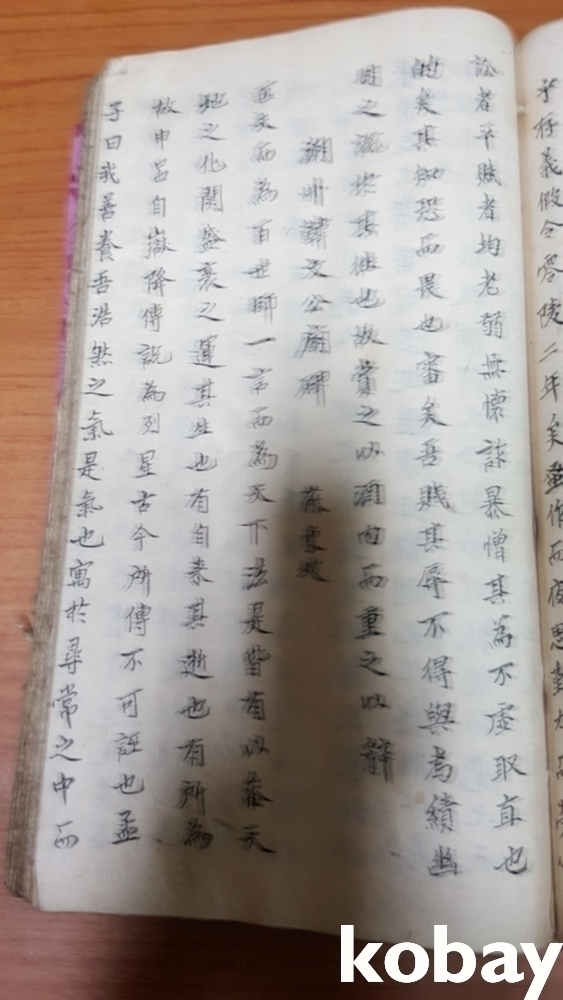 于存義假令零陵二年矣蚤作而夜思勤力而勞
訟者平賦者均老弱無懷詐暴憎其為不虛取直也
的矣其知恐而畏也審矣吾賤其辱不得與考績幽
明之說於其往也故賞之以酒肉而重之以辭
潮州韓文公廟碑 蘇東坡
匹夫而為百世師一言而為天下法是皆有以參天
地之化關盛衰之運其生也有自来其逝也有所為
故申呂自嶽降傅說為列星古今所傳不可誣也孟
子曰我善養吾浩然之氣是氣也寓於尋常之中而
kobay